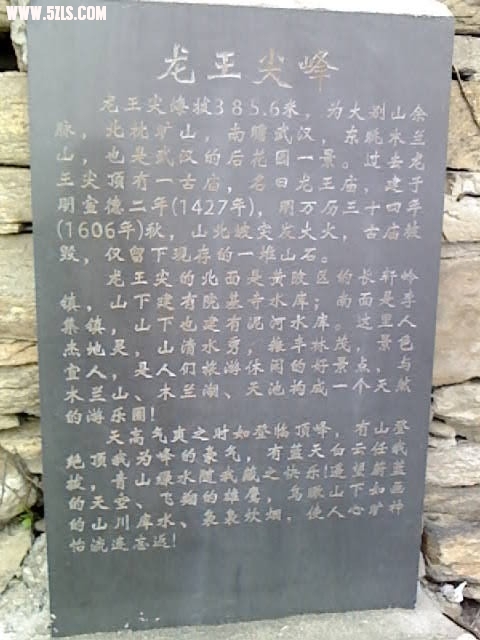 WWW.5ZLS.COM
龙王尖峰
龙王尖海拔385.6米，为大别山余
脉，北挑矿山，南瞻武汉，东眺木兰
山，也是武汉的后花园一景。过去龙
王尖顶有一古庙，名曰龙王庙，建于
明宣德二年(1427年)，明万历三十四年
(1606年)秋，山北坡突发大火，古庙被
毁，仅留下现存的一堆山石。
龙王尖的北面是黄陂区的长轩岭
镇，山下建有院基寺水库；南面是李
集镇，山下也建有泥河水库。这里人
杰地灵，山清水秀，粮丰林茂，景色
宜人，是人们旅游休闲的好景点，与
木兰山、木兰湖、天池构成一个天然
的游乐园！
天高气爽之时如登临顶峰，有山登
绝顶我为峰的豪气，有蓝天白云任我
披，青山绿水随我藏之快乐！遥望蔚蓝
的天空、飞翔的雄鹰，鸟瞰山下如画
的山川库水、袅袅炊烟，使人心旷神
怡流连忘返！